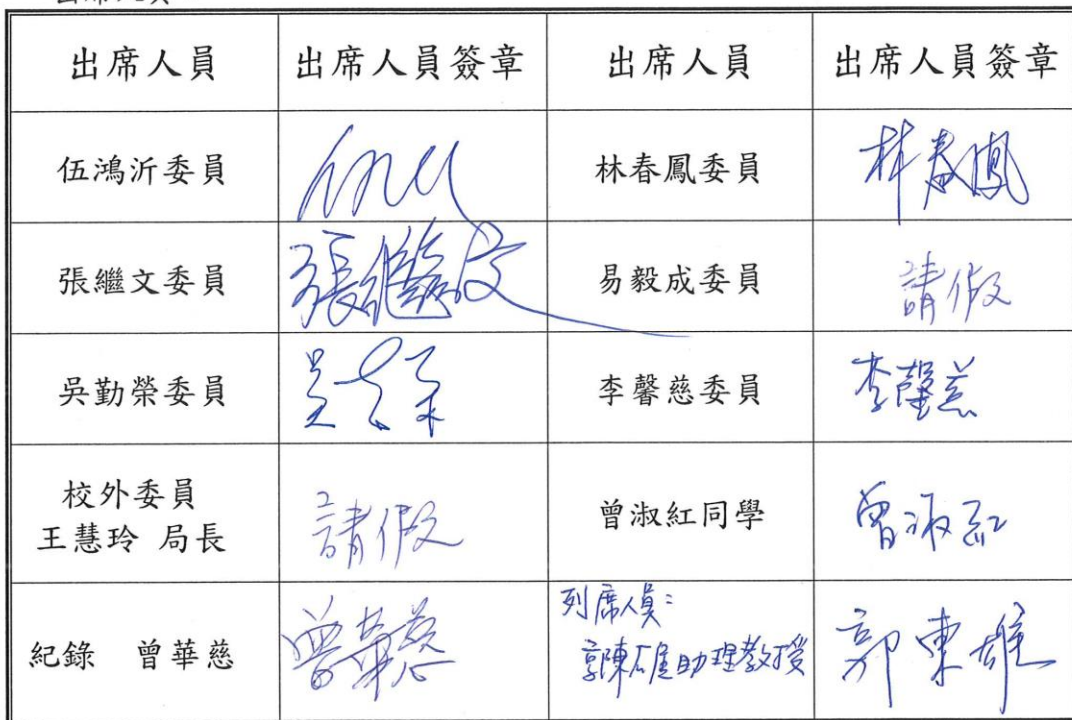 出席人員 出席人員簽章 出席人員 出席人員簽章
伍鴻沂委員 林春鳳委員 林春鳳
張繼文委員 張繼文 易毅成委員 請假
吳勤榮委員 李馨慈委員 李馨慈
校外委員
王慧玲 局長 請假 曾淑紅同學 曾淑紅
紀錄 曾華慈 曾華慈 列席人員:
郭東雄助理教授 郭東雄